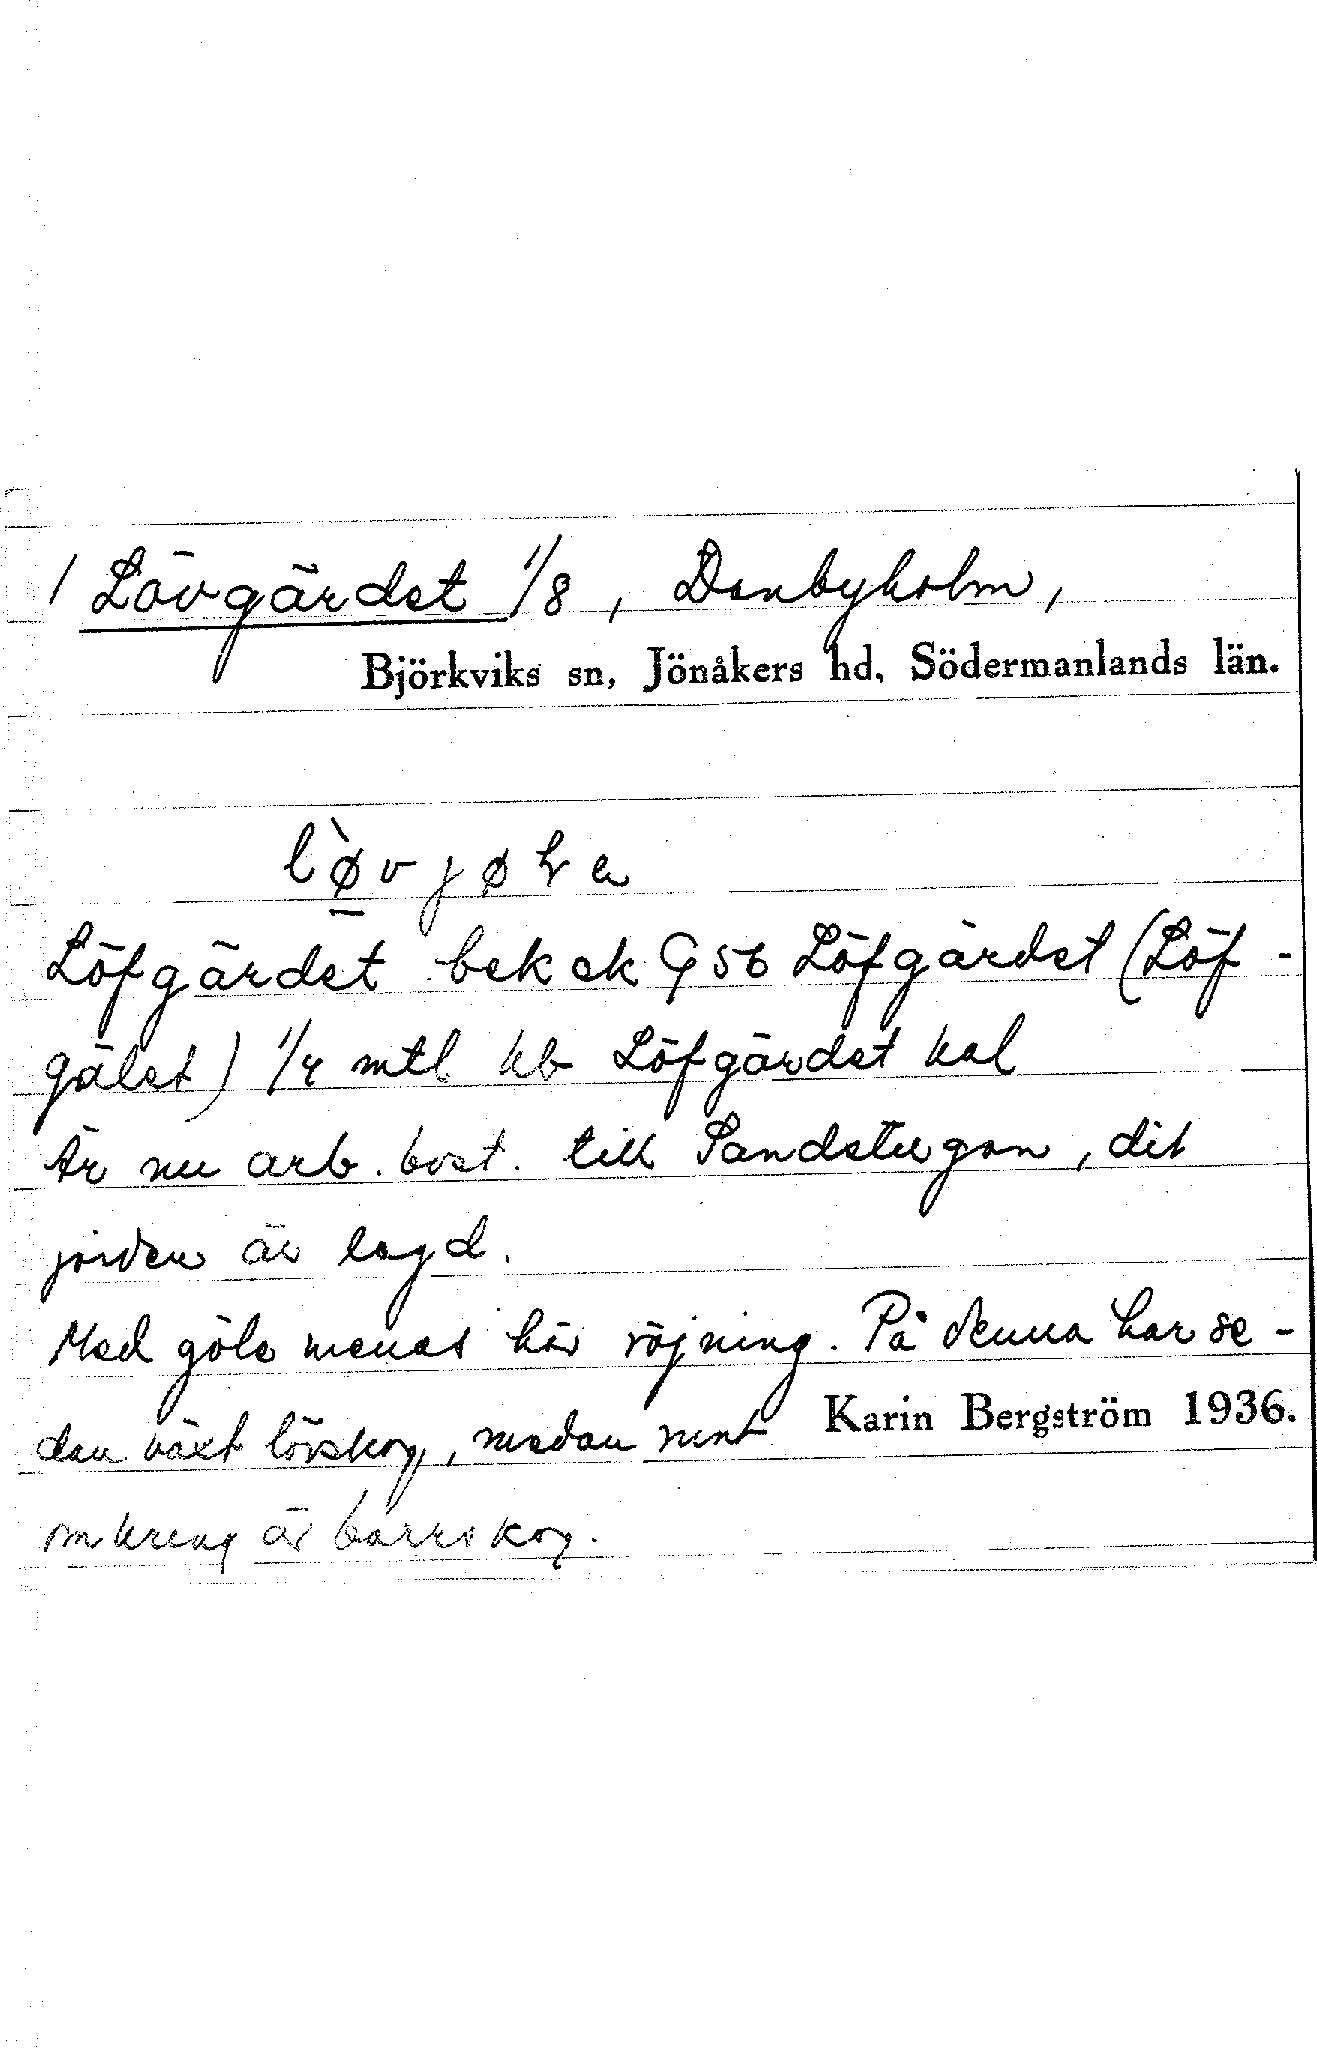 / Lövgärdet 1/8, Danbyholm,
Björkviks sn, Jönåkers hd, Södermanlands län.
Löfgärdet bek ek G 56 Löfgärdet (Löf-
gälet) 1/4 mtl kb Löfgärdet kal
Är nu arb. bost. till Sandstugan, dit
jorden är lagd.
Med göle menas här röjning. På denna har se-
dan växt lövskog, medan runt
Karin Bergström 1936.
omkring är barrskog.